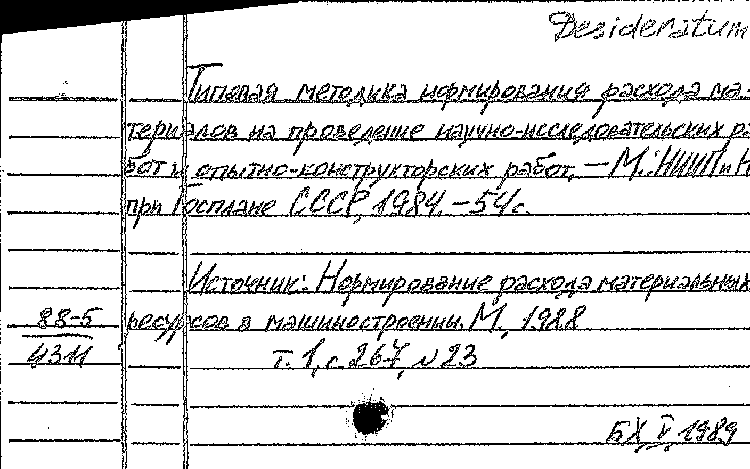 Desideratum
Типовая методика нормирования расхода ма-
териалов на проведение научно-исследовательских ра
бот и опытно-конструкторских работ. — М.: НИИПиН
при Госплане СССР, 1984. – 54 с.
Источник: Нормирование расхода материальных
ресурсов в машиностроении. М., 1988
т. 1, с. 267, № 23
88-5
4311
БХ, V, 1989